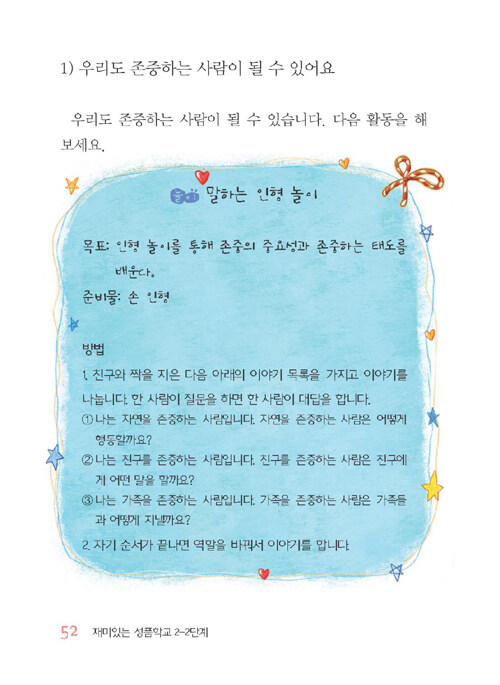 1) 우리도 존중하는 사람이 될 수 있어요
우리도 존중하는 사람이 될 수 있습니다. 다음 활동을 해
보세요.
놀이 말하는 인형 놀이
목표: 인형 놀이를 통해 존중의 중요성과 존중하는 태도를
배운다.
준비물: 손 인형
방법
1. 친구와 짝을 지은 다음 아래의 이야기 목록을 가지고 이야기를
나눕니다. 한 사람이 질문을 하면 한 사람이 대답을 합니다.
① 나는 자연을 존중하는 사람입니다. 자연을 존중하는 사람은 어떻게
행동할까요?
② 나는 친구를 존중하는 사람입니다. 친구를 존중하는 사람은 친구에
게 어떤 말을 할까요?
③ 나는 가족을 존중하는 사람입니다. 가족을 존중하는 사람은 가족들
과 어떻게 지낼까요?
2. 자기 순서가 끝나면 역할을 바꿔서 이야기를 합니다.
52 재미있는 성품학교 2-2단계